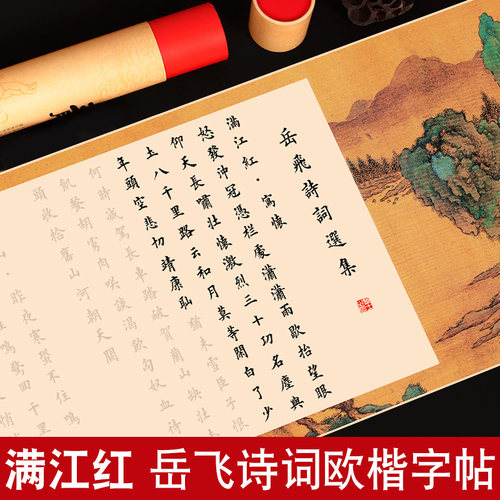 岳飛詩詞選集
滿江紅·寫懷
怒髮沖冠憑栏處瀟瀟雨歇抬望眼
仰天長嘯壯懷激烈三十功名塵與
土八千里路云和月莫等閑白了少
年頭空悲切靖康恥猶未雪臣子恨
何時滅駕長車踏破賀蘭山缺壯志
飢餐胡虜肉咲談渴飲匈奴血
頭收拾舊山河朝天闕
昨夜寒蛩不住鳴
满江红 岳飞诗词欧楷字帖